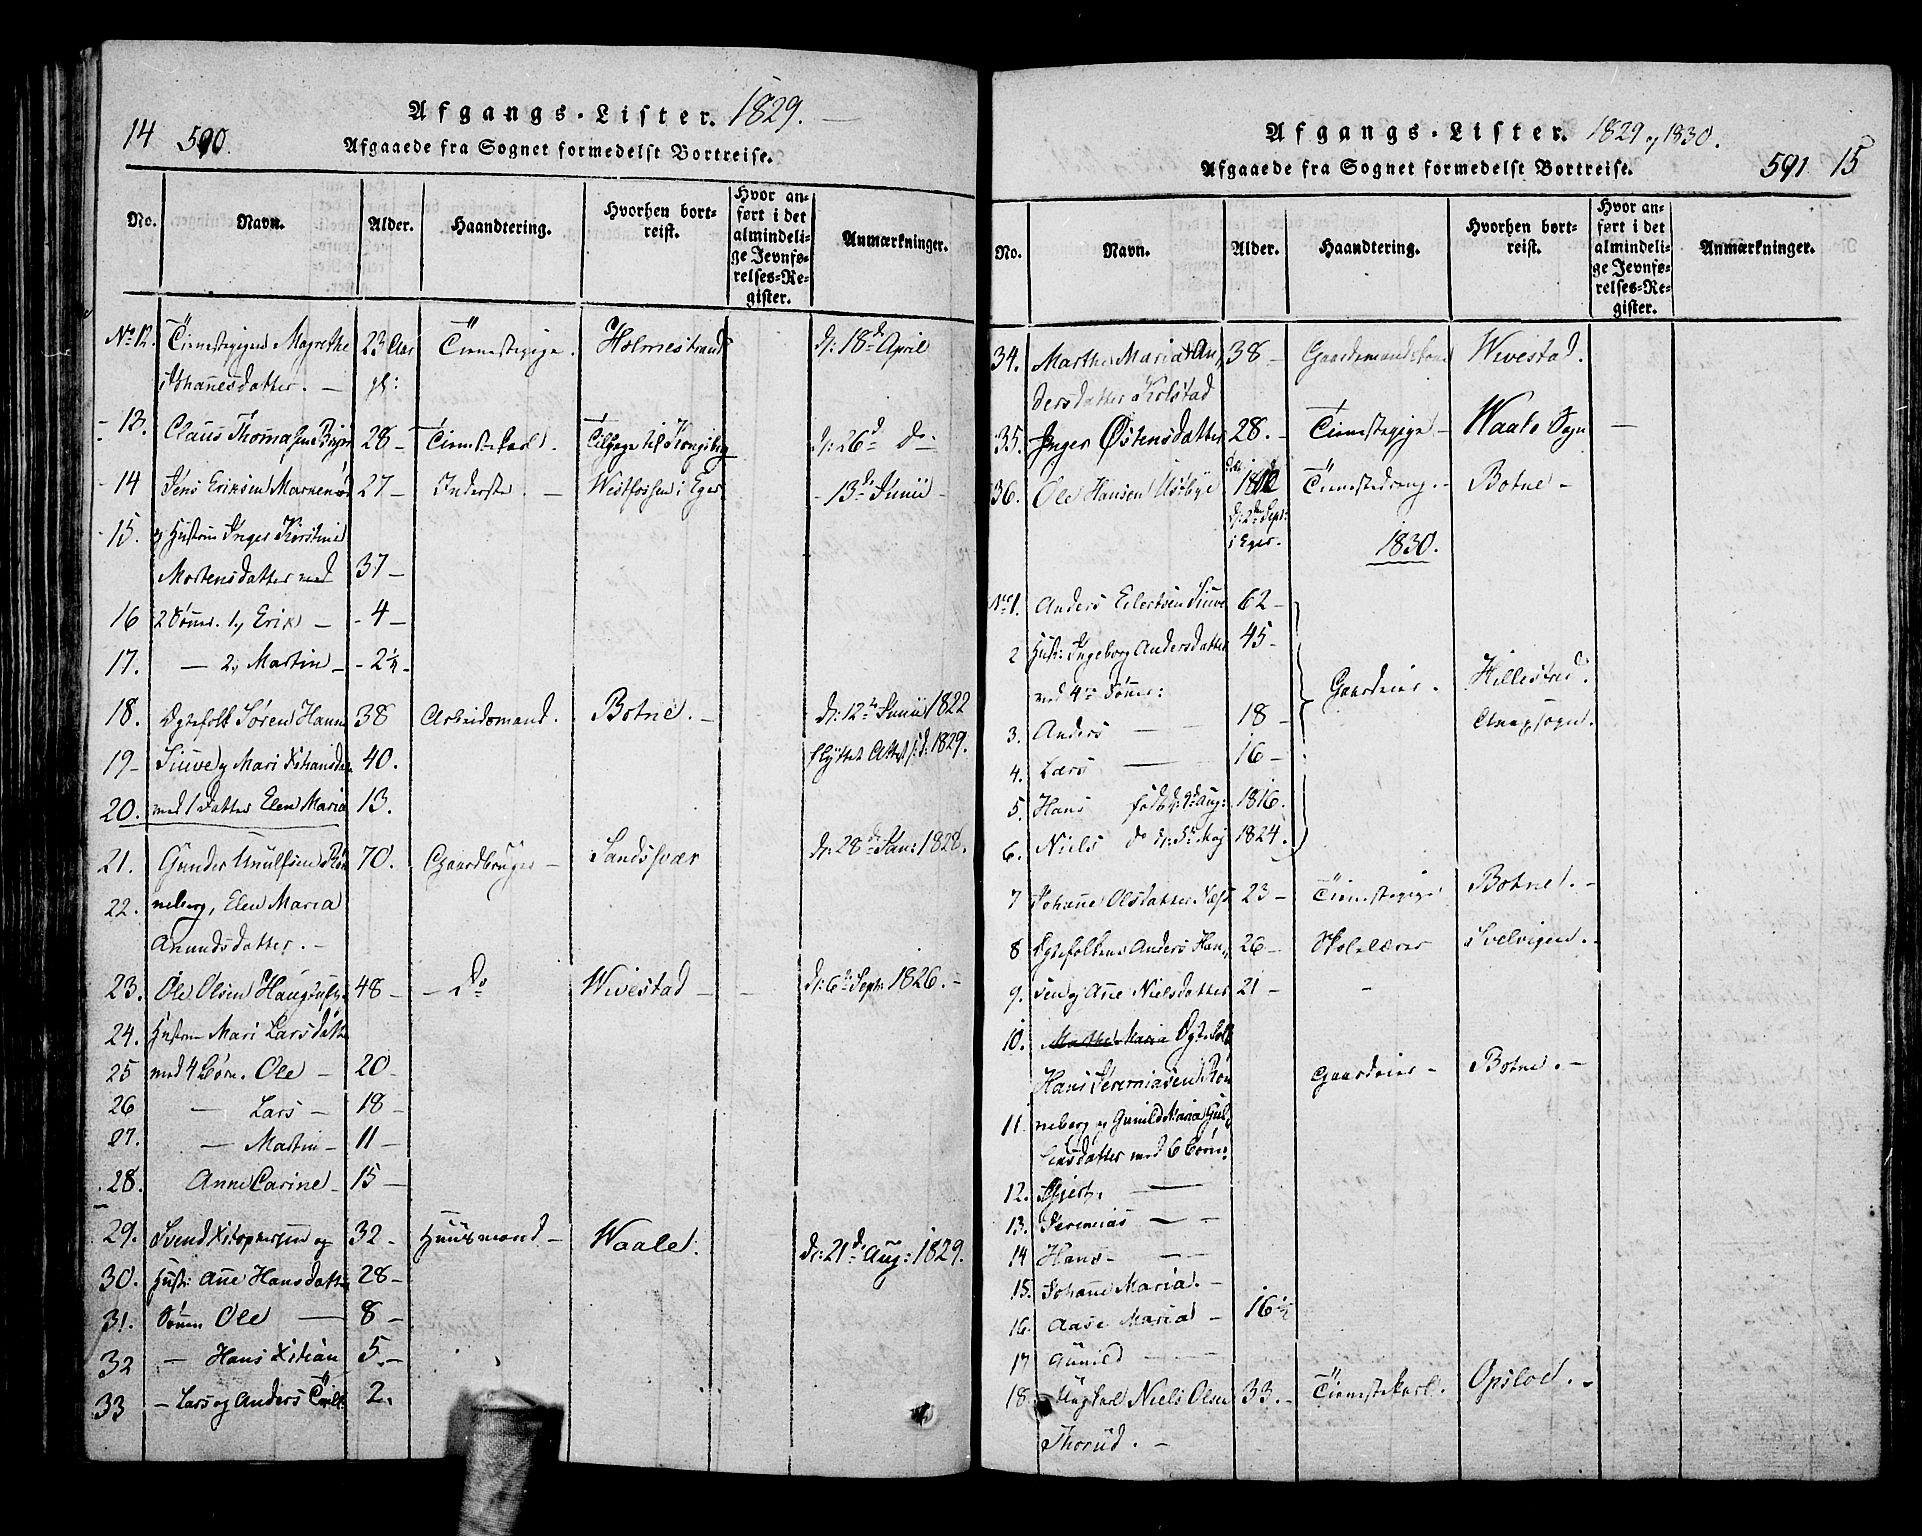 14 590.
Afgangs-Lister. 1829.
Afgaaede fra Sognet formedelst Bortreise.
No. Navn. Alder. Haandtering. Hvorhen bortreist. Hvor anført i det almindelige Jevnførelses-Register. Anmærkninger.
No 12. Tienestepigen Magrethe 23 Aar Tienestepige. Holmestrand d: 18d April
Johanesdatter. — gl:
13. Claus Thomasen 28 — Tienestekarl. til Kongsberg d: 26d do
14 Jens Eriksen 27 — Inderste — Westfossen i Eger 13d Junii —
15. og Hustru Inger Kirstine
Mortensdatter med 37 —
16 2 Sønner. 1, Erik — 4 —
17. — 2, Martin — 2½ —
18. Egtefolk Søren Hans 38 Arbeidsmand. Botne. — d: 12te Junii 1822
19 Siuve og Mari 40. flyttet Attest d: 1829.
20. med 1 Datter Elen Maria 13.
21. Gunder 70. Gaardbruger — Sandsvær d: 28d Jan: 1828.
22. neberg, Elen Maria
Anundsdatter. —
23. Ole Olsen 48 — Do Wivestad — d: 6d Sept: 1826. —
24. Hustru Mari Larsdatter
25 med 4 Børn. Ole — 20
26 — Lars — 18 —
27. — Martin — 11 —
28. Anne Carine — 15 —
29. Svend Xstophersen og 32 — Huusmand — Waale. d: 21d Aug: 1829.
30. Hustr: Ane Hansdatter 28 —
31. Sønner Ole — 8 —
32 — Hans Xstian 5. —
33 — Lars og Anders Tvill: 2.
Afgangs-Lister. 1829 og 1830.
Afgaaede fra Sognet formedelst Bortreise.
591 15
No. Navn. Alder. Haandtering. Hvorhen bortreist. Hvor anført i det almindelige Jevnførelses-Register. Anmærkninger.
34. Marthe Maria An- 38 — Gaardemandskone Wivestad.
dersdatter Kolstad
35. Inger Østensdatter 28. — Tienestepige — Waale Sogn —
36. Ole Hansen 1812 Tienestedreng — Botne —
d: 2d Sept:
i Eger.
1830.
No 1. Anders Eilertsen Siuve 62 —
2 Hustr: Ingeborg Andersdatter 45 —
med 4re Sønner: Gaardeier. Hillestad
3. Anders — 18 — Annexsogn.
4. Lars — 16 —
5. Hans født d: 9d Aug: 1816.
6. Niels do d: 5te Maj 1824.
7 Johanne Olsdatter Næss 23 — Tienestepige Botne. —
8 Egtefolkene Anders Han- 26 — Skolelærer Svelvigen. —
9. sen og Ane Nielsdatter 21 —
10. Marthe Maria Egtefolk
Hans Jeremiasen Røn Gaardeier — Botne. —
11. neberg og Gunild Maria Gul-
datter med 6 Børn:
12. —
13. Jeremias — —
14 Hans — —
15. Johane Maria. —
16. Aase Maria — 16½
17 Gunild —
18. Ungkarl Niels Olsen 33. — Tienestekarl. Opslod. —
Thorud. —